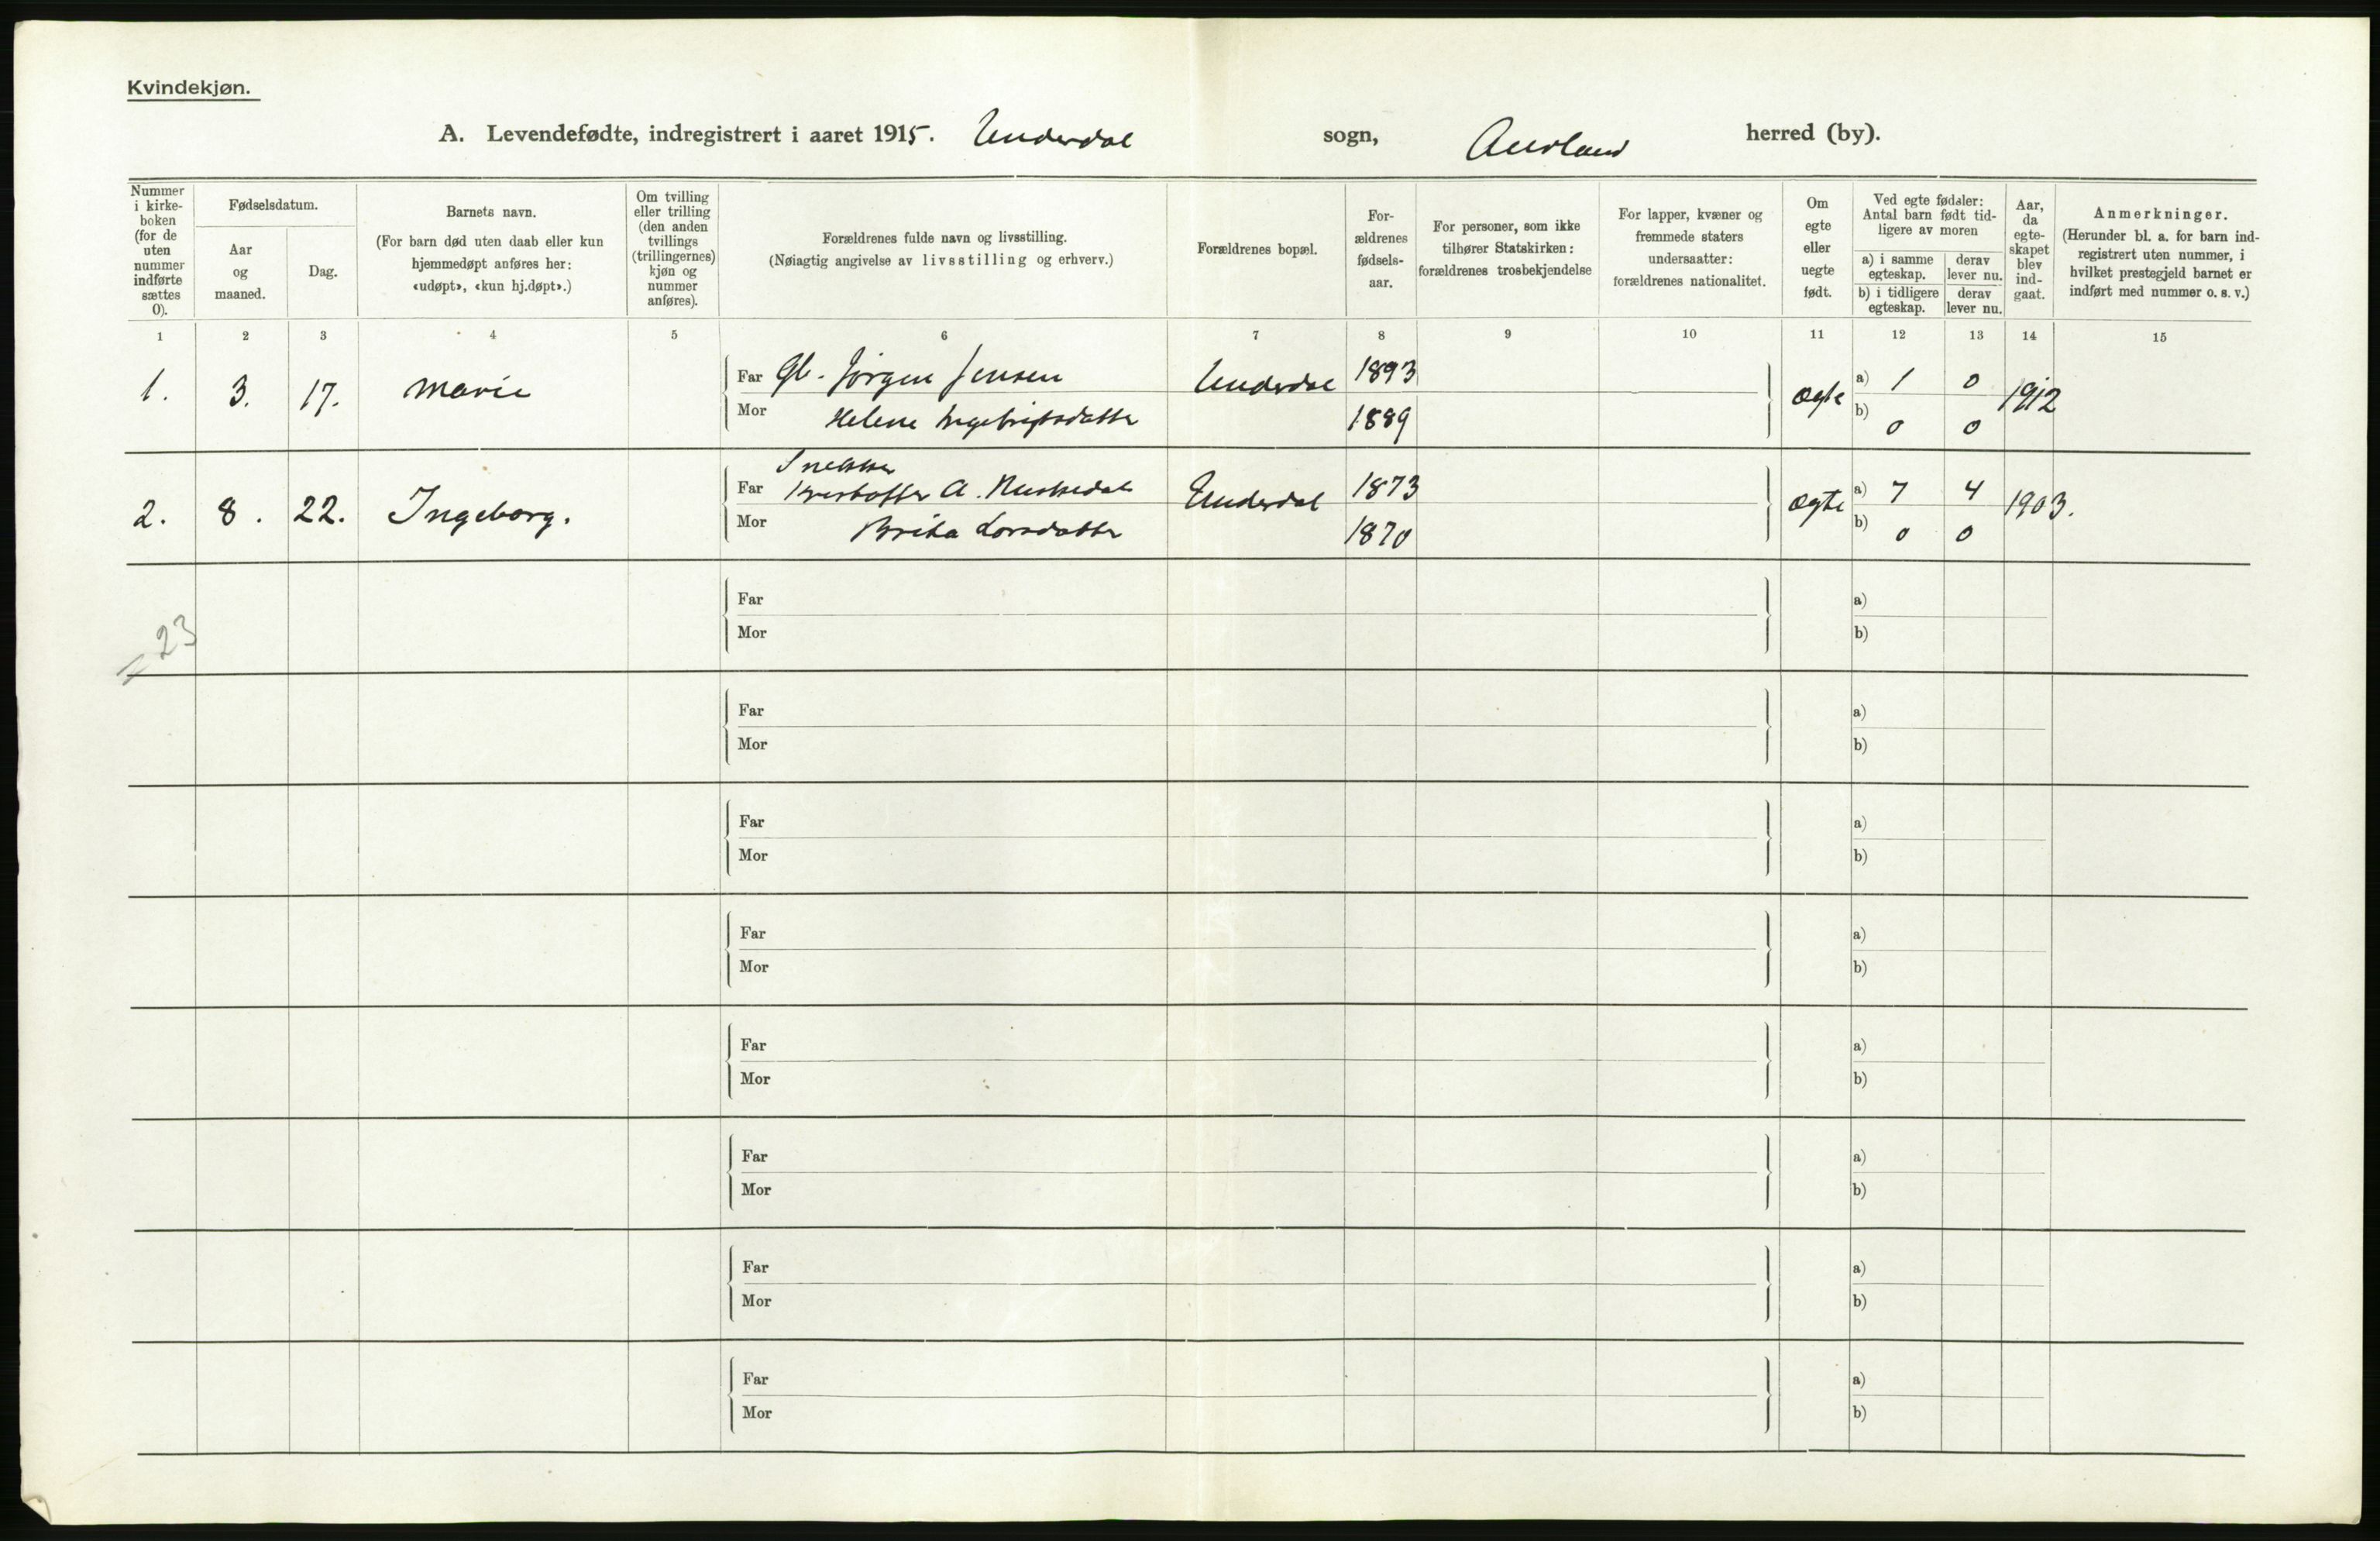 Kvindekjøn.
A. Levendefødte, indregistrert i aaret 1915. Underdal sogn, Aurland herred (by).
Nummer i kirke-boken (for de uten nummer indførte sættes 0).
Fødselsdatum.
Aar og maaned.
Dag.
Barnets navn.
(For barn død uten daab eller kun hjemmedøpt anføres her: «udøpt», «kun hj.døpt».)
Om tvilling eller trilling (den anden tvillings (trillingernes) kjøn og nummer anføres).
Forældrenes fulde navn og livsstilling.
(Nøiagtig angivelse av livsstilling og erhverv.)
Forældrenes bopæl.
For-ældrenes fødsels-aar.
For personer, som ikke tilhører Statskirken: forældrenes trosbekjendelse
For lapper, kvæner og fremmede staters undersaatter: forældrenes nationalitet.
Om egte eller uegte født.
Ved egte fødsler: Antal barn født tid-ligere av moren
a) i samme egteskap.
derav lever nu.
b) i tidligere egteskap.
derav lever nu.
Aar, da egte-skapet blev ind-gaat.
Anmerkninger.
(Herunder bl. a. for barn ind-registrert uten nummer, i hvilket prestegjeld barnet er indført med nummer o. s. v.)
1 2 3 4 5 6 7 8 9 10 11 12 13 14 15
1. 3. 17. Marie Far Gb. Jørgen Jensen Underdal 1893 Ægte a) 1 0 1912
Mor Helene Ingebrigtsdatter 1889 b) 0 0
Snekker
2. 8. 22. Ingeborg. Far Kristoffer A. Underdal 1873 Ægte a) 7 4 1903.
Mor Brita Larsdatter 1870 b) 0 0
= 23
Far a)
Mor b)
Far a)
Mor b)
Far a)
Mor b)
Far a)
Mor b)
Far a)
Mor b)
Far a)
Mor b)
Far a)
Mor b)
Far a)
Mor b)